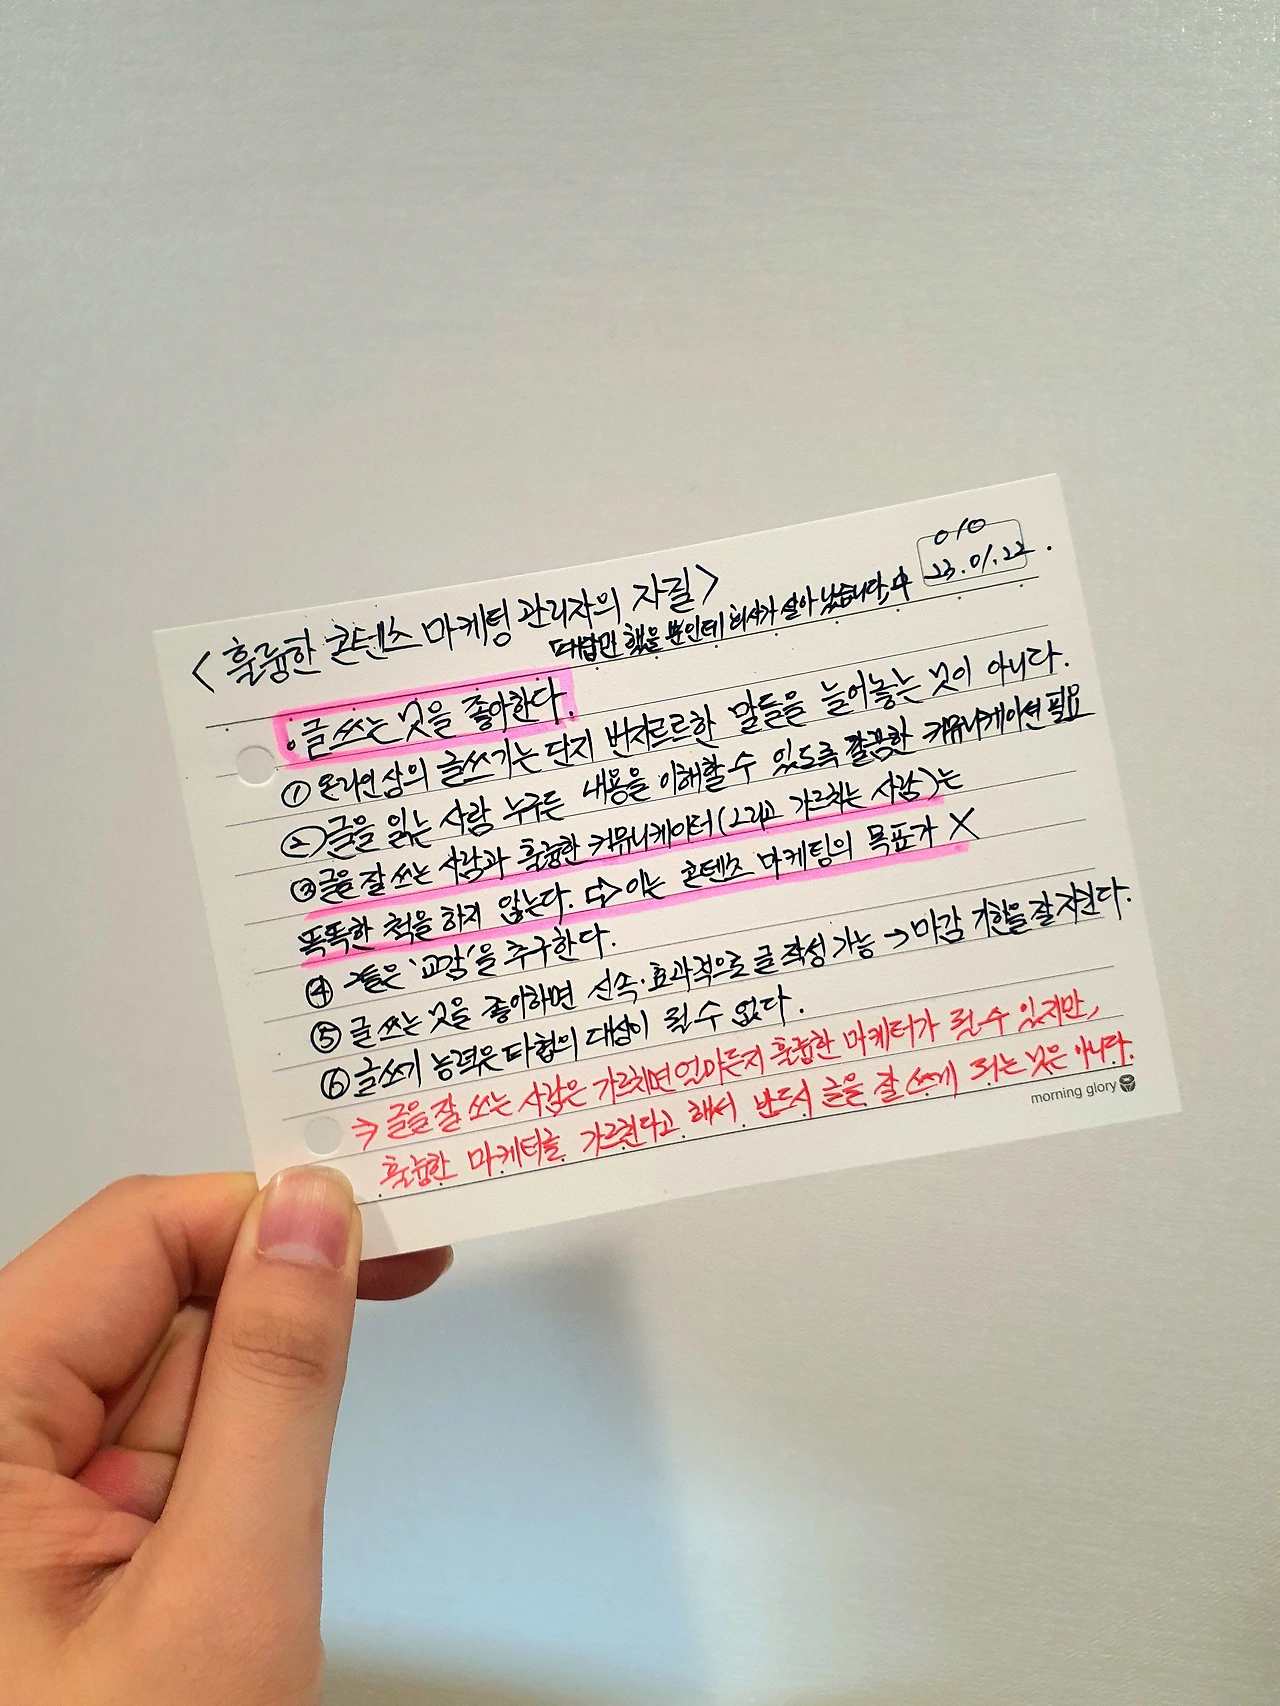 010
23.01.22.
<훌륭한 콘텐츠 마케팅 관리자의 자질>
대답만 했을 뿐인데 회사가 살아났습니다, 中
• 글 쓰는 것을 좋아한다.
① 온라인상의 글쓰기는 단지 번지르르한 말들을 늘어놓는 것이 아니다.
② 글을 읽는 사람 누구든 내용을 이해할 수 있도록 깔끔한 커뮤니케이션 필요
③ 글을 잘 쓰는 사람과 훌륭한 커뮤니케이터(그리고 가르치는 사람)는
똑똑한 척을 하지 않는다. ⇨ 이는 콘텐츠 마케팅의 목표가 X
④ 그들은 '교감'을 추구한다.
⑤ 글 쓰는 것을 좋아하면 신속·효과적으로 글 작성 가능 → 마감 기한을 잘 지킨다.
⑥ 글쓰기 능력은 타협의 대상이 될 수 없다.
⇒ 글을 잘 쓰는 사람은 가르치면 얼마든지 훌륭한 마케터가 될 수 있지만,
훌륭한 마케터를 가르친다고 해서 반드시 글을 잘 쓰게 되는 것은 아니다.
morning glory